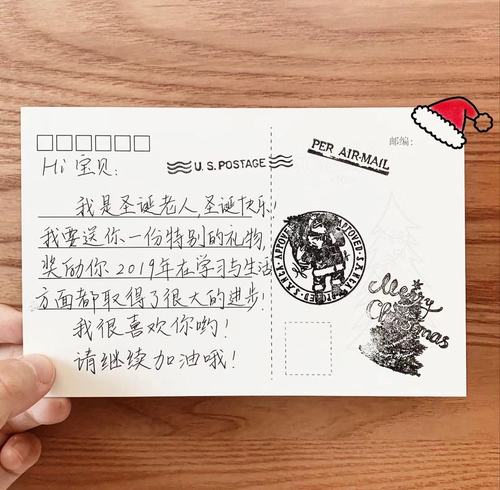 Hi 宝贝:
我是圣诞老人,圣诞快乐!
我要送你一份特别的礼物,
奖励你2019年在学习与生活
方面都取得了很大的进步!
我很喜欢你哟!
请继续加油哦!
U.S.POSTAGE
PER AIR-MAIL
邮编:
APPOVED
Merry
Christmas